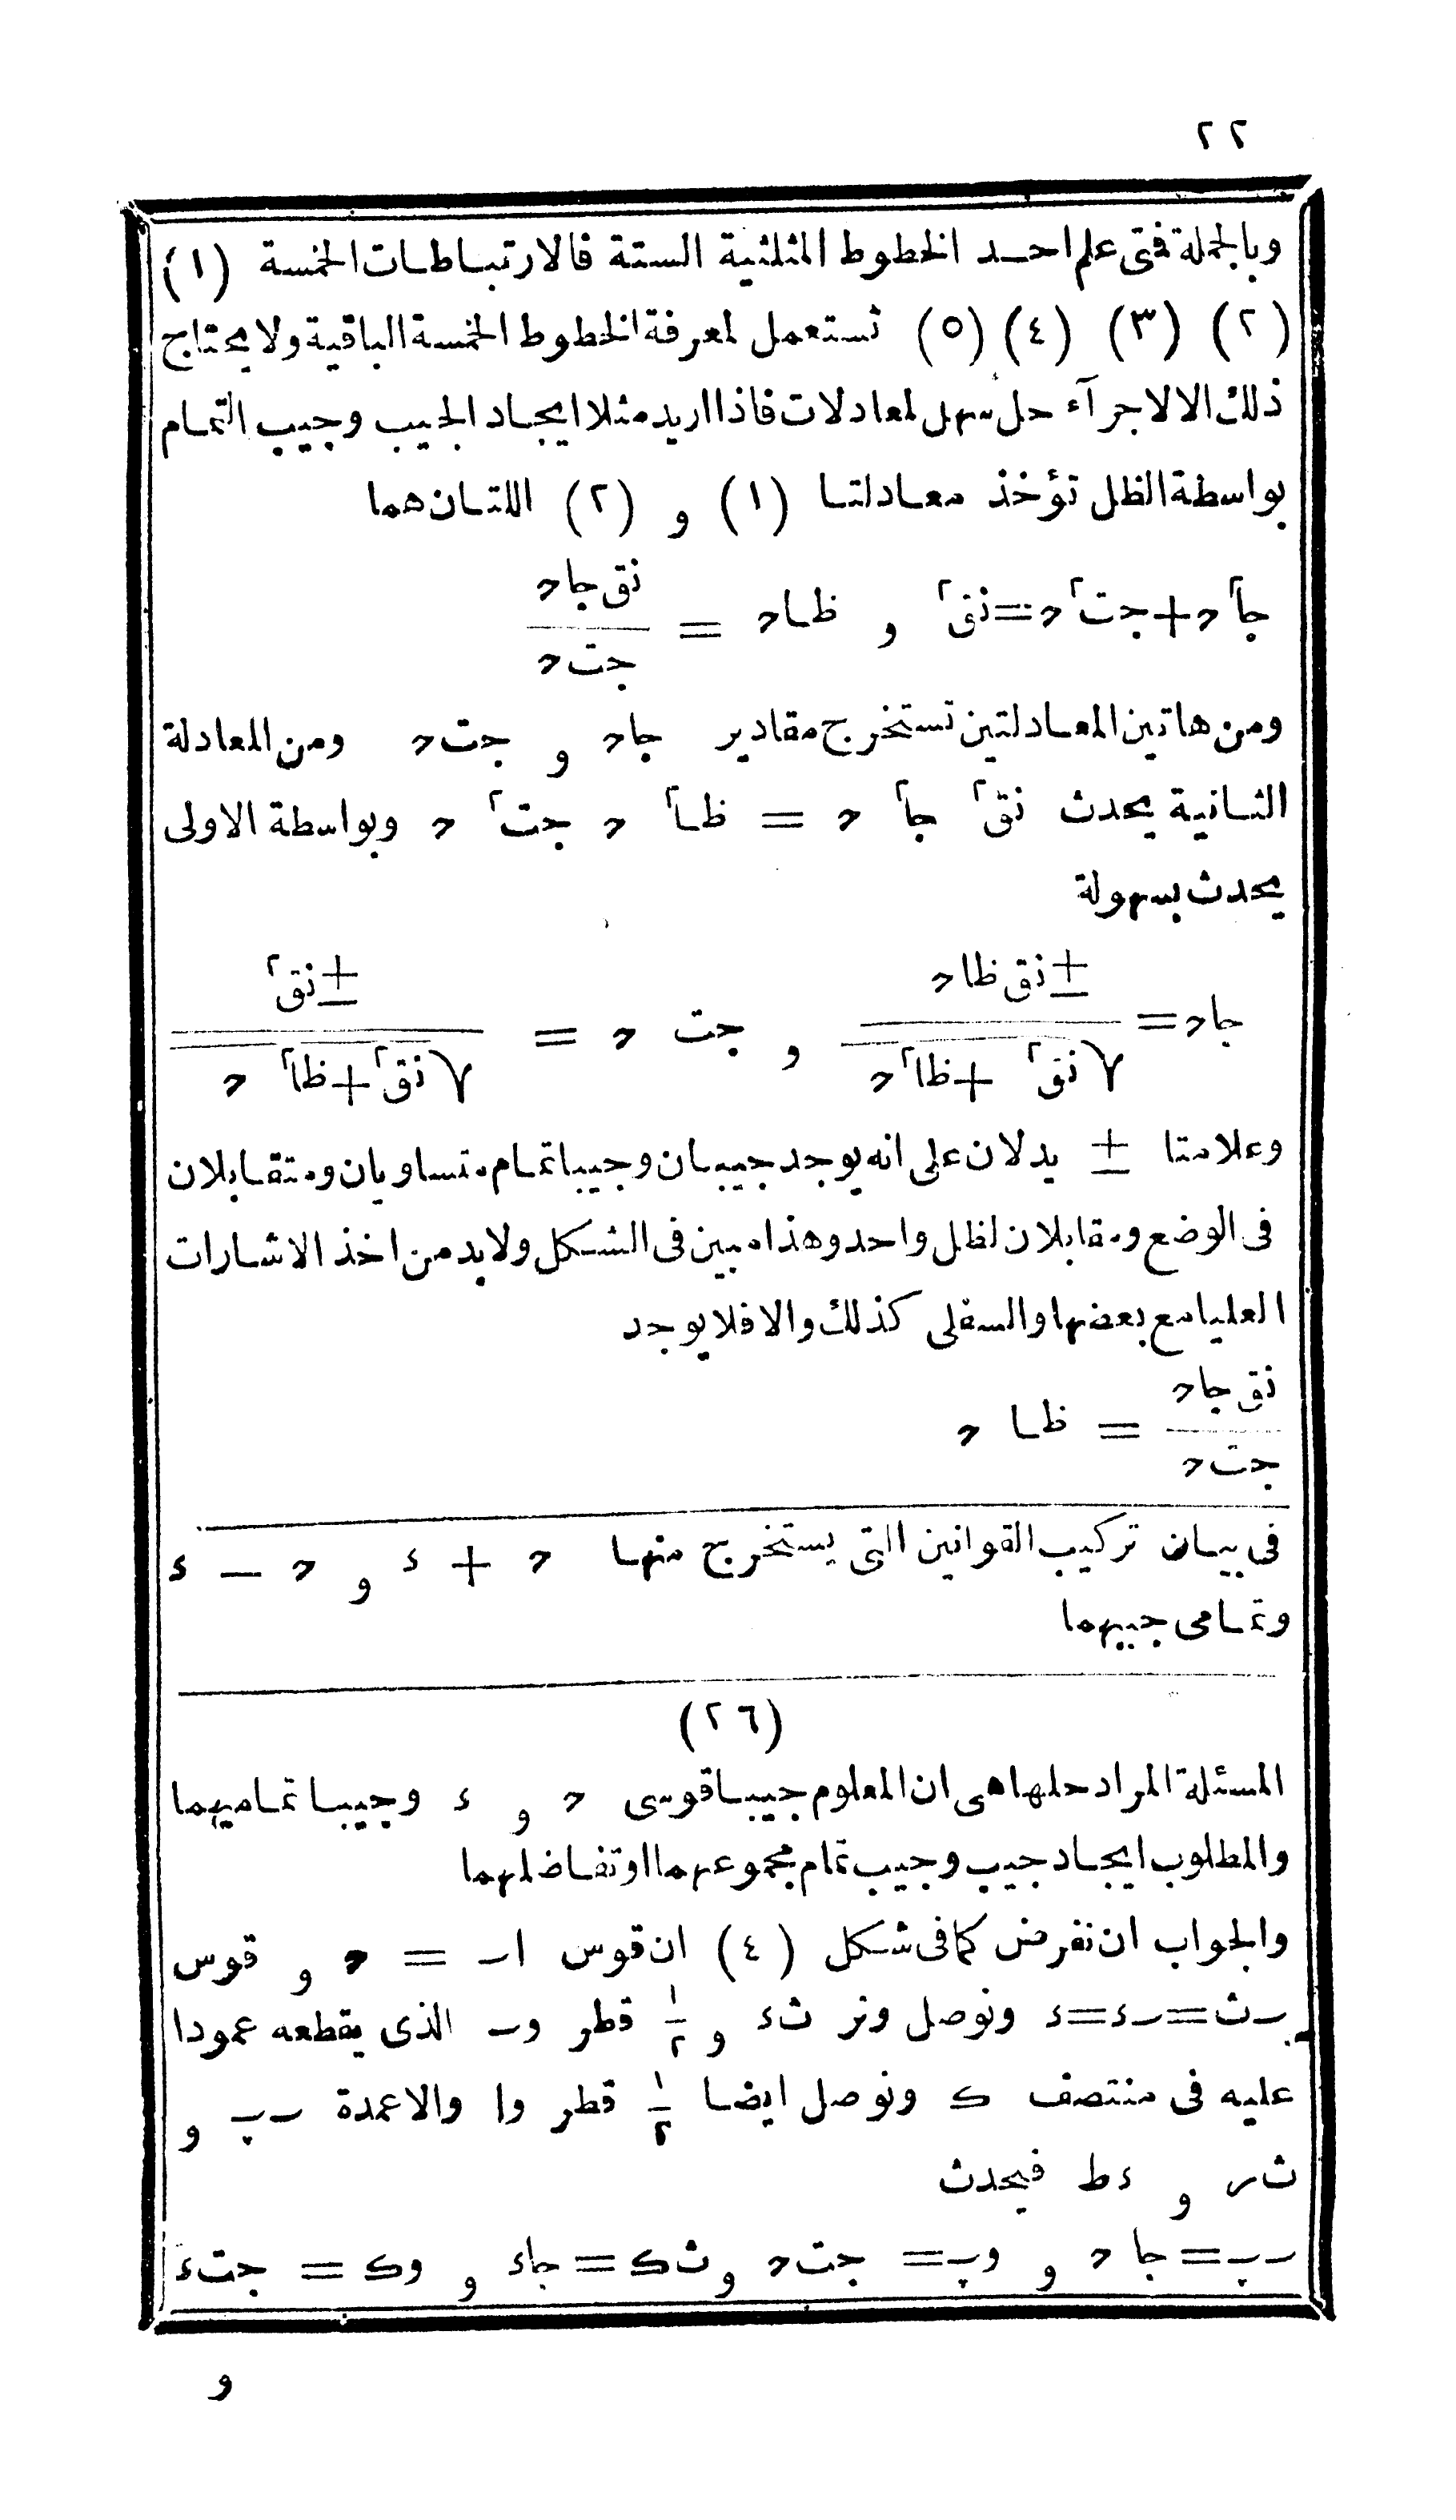 ٢٢
وبالجملة فمتى علم احد الخطوط المثلثية الستة فالارتباطات الخمسة (١)
(٢) (٣) (٤) (٥) تستعمل لمعرفة الخطوط الخمسة الباقية ولا يحتاج
ذلك الالاجرآء حل سهل لمعادلات فاذا اريد مثلا ايجاد الجيب وجيب التمام
بواسطة الظل تؤخذ معادلتا (١) و (٢) اللتان هما
جا٢ ﺣ + جت٢ ﺣ = نق٢ و ظا ﺣ = نق جا ﺣ / جت ﺣ
ومن هاتين المعادلتين تستخرج مقادير جا ﺣ و جت ﺣ ومن المعادلة
الثانية يحدث نق٢ جا٢ ﺣ = ظا٢ ﺣ جت٢ ﺣ وبواسطة الاولى
يحدث بسهولة
جا ﺣ = ± نق ظا ﺣ / √ نق٢ + ظا٢ ﺣ و جت ﺣ = ± نق٢ / √ نق٢ + ظا٢ ﺣ
وعلامتا ± يدلان على انه يوجد جيبان وجيبا تمام متساويان ومتقابلان
فى الوضع ومقابلان لظل واحد وهذا مبين فى الشكل ولابد من اخذ الاشارات
العليا مع بعضها والسفلى كذلك والا فلا يوجد
نق جا ﺣ / جت ﺣ = ظا ﺣ
فى بيان تركيب القوانين التى يستخرج منها ﺣ + ء و ﺣ — ء
وتمامى جيبهما
(٢٦)
المسئلة المراد حلها هى ان المعلوم جيبا قوسى ﺣ و ء وجيبا تماميهما
والمطلوب ايجاد جيب وجيب تمام مجموعهما او تفاضلهما
والجواب ان نفرض كما فى شكل (٤) ان قوس اب = ﺣ و قوس
بث = بء = ء ونوصل وتر ثء و ١/٢ قطر وب الذى يقطعه عمودا
عليه فى منتصف ك ونوصل ايضا ١/٢ قطر وا والاعمدة بپ و
ثر و ءط فيحدث
بپ = جا ﺣ و وپ = جت ﺣ و ثك = جاء و وك = جتء
و